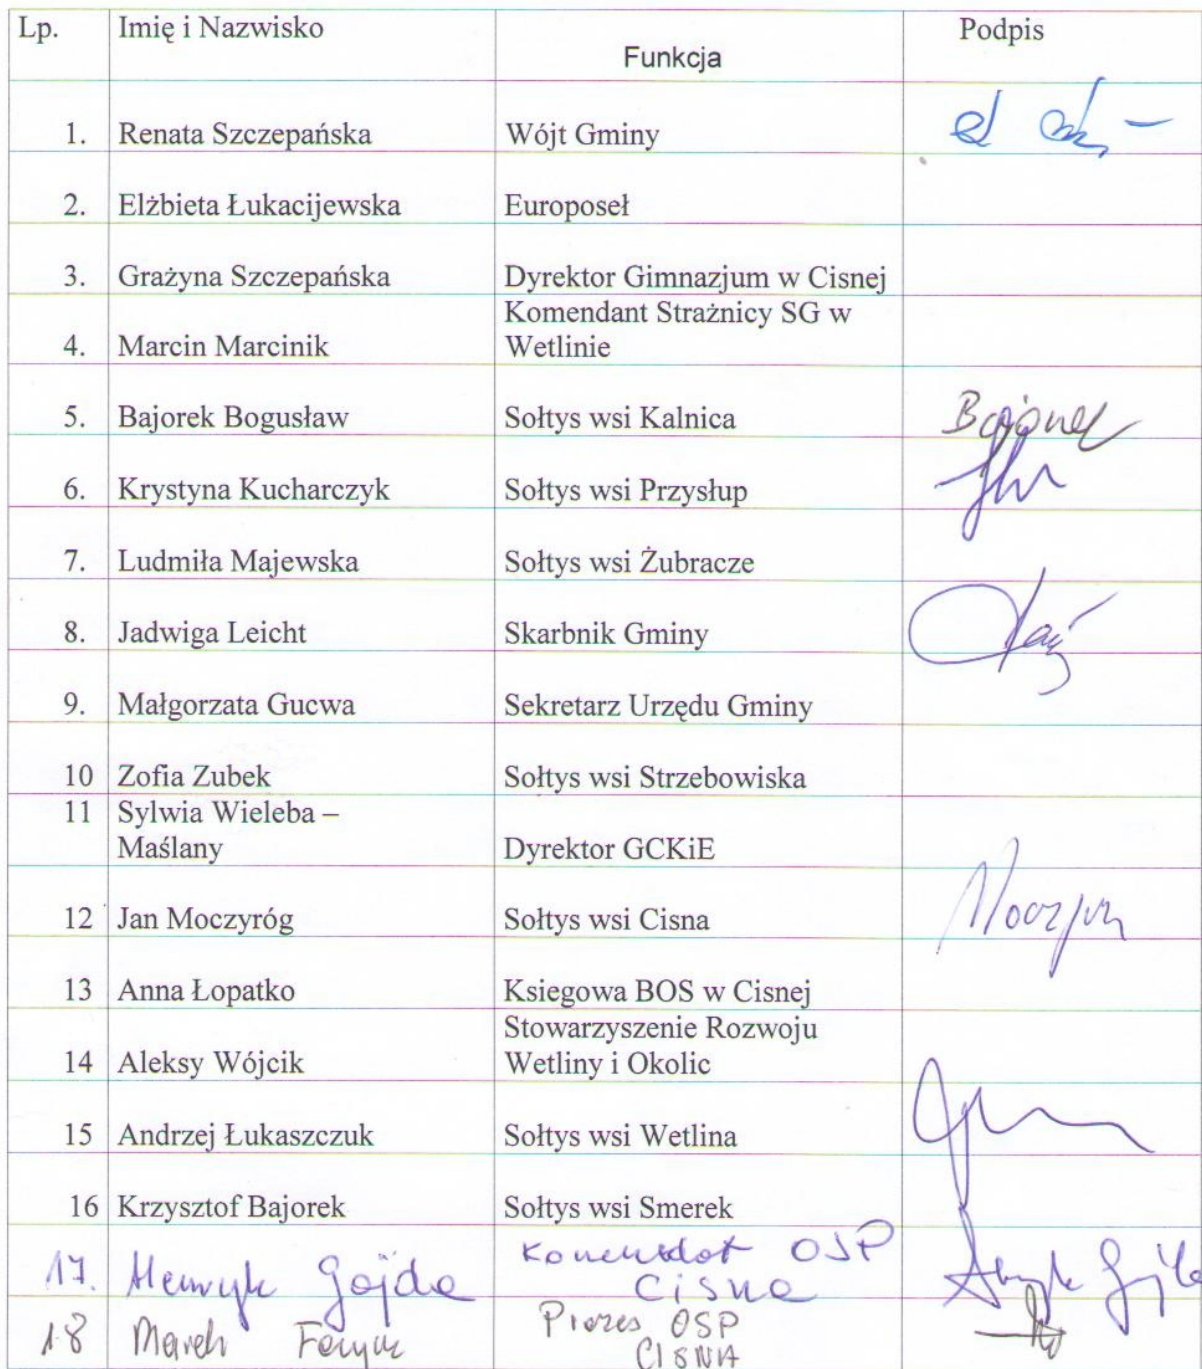 Lp. Imię i Nazwisko Funkcja Podpis
1. Renata Szczepańska Wójt Gminy
2. Elżbieta Łukacijewska Europoseł
3. Grażyna Szczepańska Dyrektor Gimnazjum w Cisnej
4. Marcin Marcinik Komendant Strażnicy SG w
Wetlinie
5. Bajorek Bogusław Sołtys wsi Kalnica Bajorek
6. Krystyna Kucharczyk Sołtys wsi Przysłup
7. Ludmiła Majewska Sołtys wsi Żubracze
8. Jadwiga Leicht Skarbnik Gminy
9. Małgorzata Gucwa Sekretarz Urzędu Gminy
10 Zofia Zubek Sołtys wsi Strzebowiska
11 Sylwia Wieleba –
Maślany Dyrektor GCKiE
12 Jan Moczyróg Sołtys wsi Cisna
13 Anna Łopatko Ksiegowa BOS w Cisnej
14 Aleksy Wójcik Stowarzyszenie Rozwoju
Wetliny i Okolic
15 Andrzej Łukaszczuk Sołtys wsi Wetlina
16 Krzysztof Bajorek Sołtys wsi Smerek
17. Henryk Gojda Komendat OSP
Cisna Henryk Gojda
18 Marek Prezes OSP
CISNA